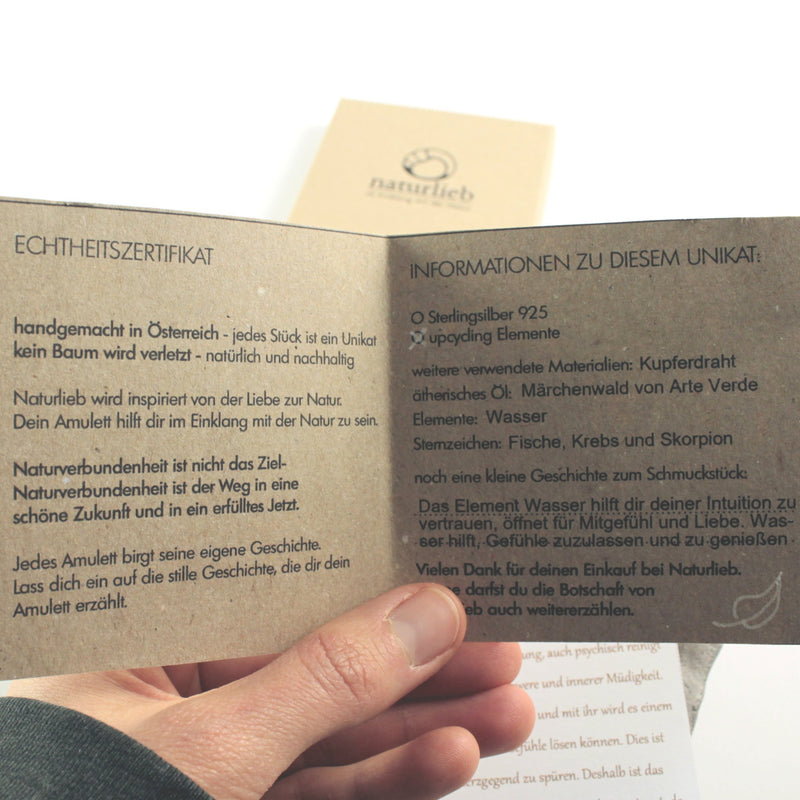 naturlieb
ECHTHEITSZERTIFIKAT
handgemacht in Österreich - jedes Stück ist ein Unikat
kein Baum wird verletzt - natürlich und nachhaltig
Naturlieb wird inspiriert von der Liebe zur Natur.
Dein Amulett hilft dir im Einklang mit der Natur zu sein.
Naturverbundenheit ist nicht das Ziel-
Naturverbundenheit ist der Weg in eine
schöne Zukunft und in ein erfülltes Jetzt.
Jedes Amulett birgt seine eigene Geschichte.
Lass dich ein auf die stille Geschichte, die dir dein
Amulett erzählt.
INFORMATIONEN ZU DIESEM UNIKAT:
O Sterlingsilber 925
upcycling Elemente
weitere verwendete Materialien: Kupferdraht
ätherisches Öl: Märchenwald von Arte Verde
Elemente: Wasser
Sternzeichen: Fische, Krebs und Skorpion
noch eine kleine Geschichte zum Schmuckstück:
Das Element Wasser hilft dir deiner Intuition zu
vertrauen, öffnet für Mitgefühl und Liebe. Was-
ser hilft, Gefühle zuzulassen und zu genießen
Vielen Dank für deinen Einkauf bei Naturlieb.
darfst du die Botschaft von
auch weitererzählen.
auch psychisch reinigt
und innerer Müdigkeit.
und mit ihr wird es einem
lösen können. Dies ist
zu spüren. Deshalb ist das